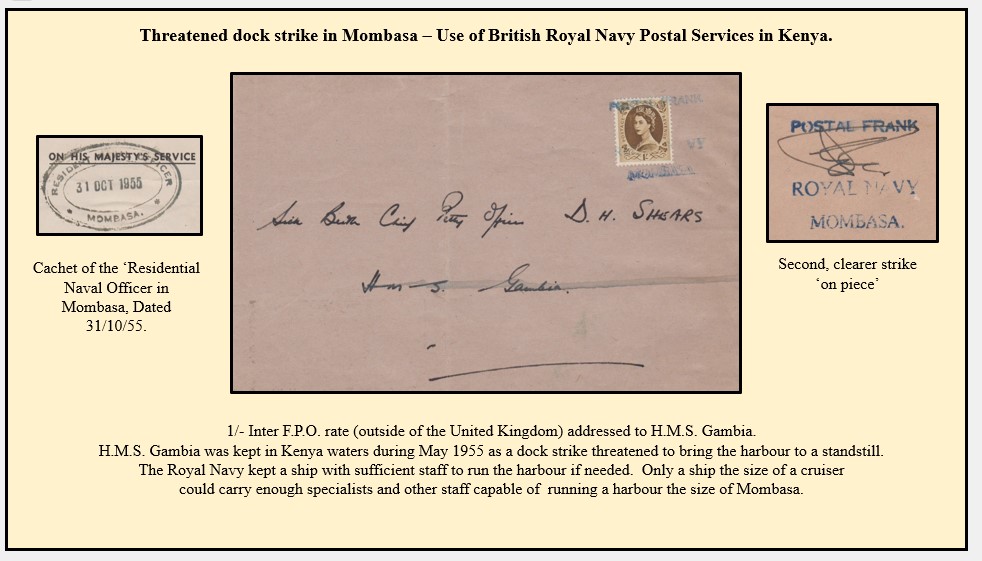 Threatened dock strike in Mombasa – Use of British Royal Navy Postal Services in Kenya.
ON HIS MAJESTY'S SERVICE
RESIDENT OFFICER
31 OCT 1955
MOMBASA.
Cachet of the ‘Residential
Naval Officer in
Mombasa, Dated
31/10/55.
FRANK
VY
MOMBASA.
Petty Officer D. H. SHEARS
H.M.S. Gambia.
POSTAL FRANK
ROYAL NAVY
MOMBASA.
Second, clearer strike
‘on piece’
1/- Inter F.P.O. rate (outside of the United Kingdom) addressed to H.M.S. Gambia.
H.M.S. Gambia was kept in Kenya waters during May 1955 as a dock strike threatened to bring the harbour to a standstill.
The Royal Navy kept a ship with sufficient staff to run the harbour if needed. Only a ship the size of a cruiser
could carry enough specialists and other staff capable of running a harbour the size of Mombasa.